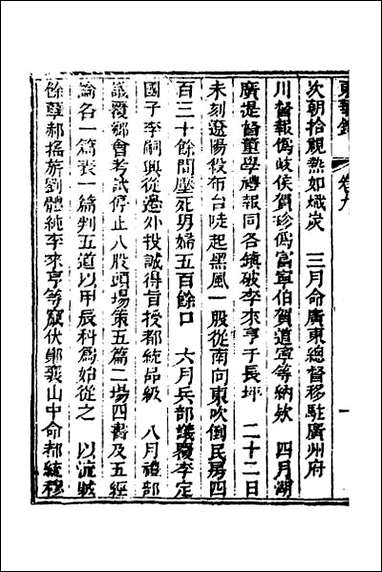 東華錄 卷九 一
次朝拾視熱如熾炭　三月命廣東總督移駐廣州府
川督報僞岐侯賀珍僞富寧伯賀道寧等納欵　四月湖
廣提督董學禮報同各鎮破李來亨于長坪　二十二日
未刻遼陽投布台陡起黑風一股從南向東吹倒民房四
百三十餘間壓死男婦五百餘口　六月兵部議覆李定
國子李嗣興從邊外投誠得旨授都統品級　八月禮部
議覆鄉會考試停止八股頭場策五篇二場四書及五經
論名一篇表一篇判五道以甲辰科爲始從之　以流賊
餘孽郝搖旂劉體純李來亨等竄伏鄖襄山中命都統穆